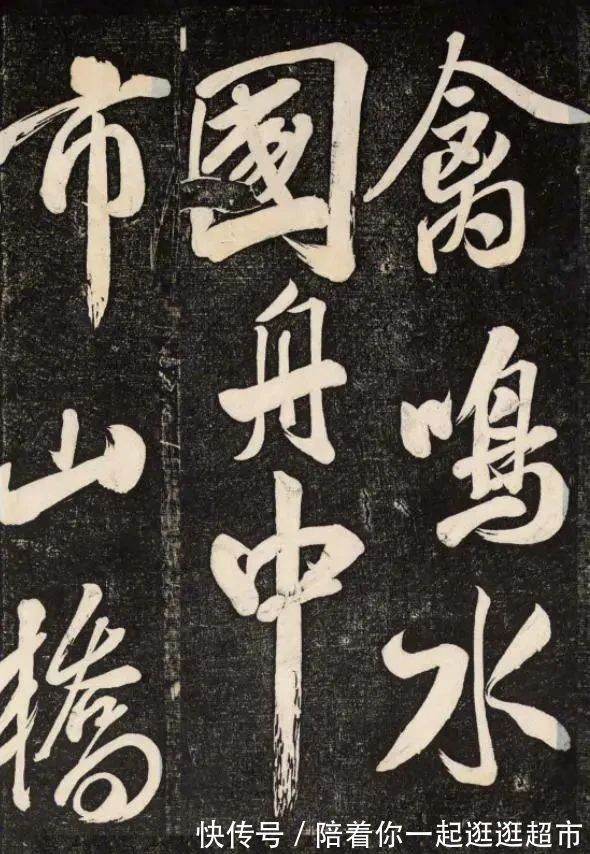 禽鳴水
國舟中
市山橋
快传号／陪着你一起逛逛超市